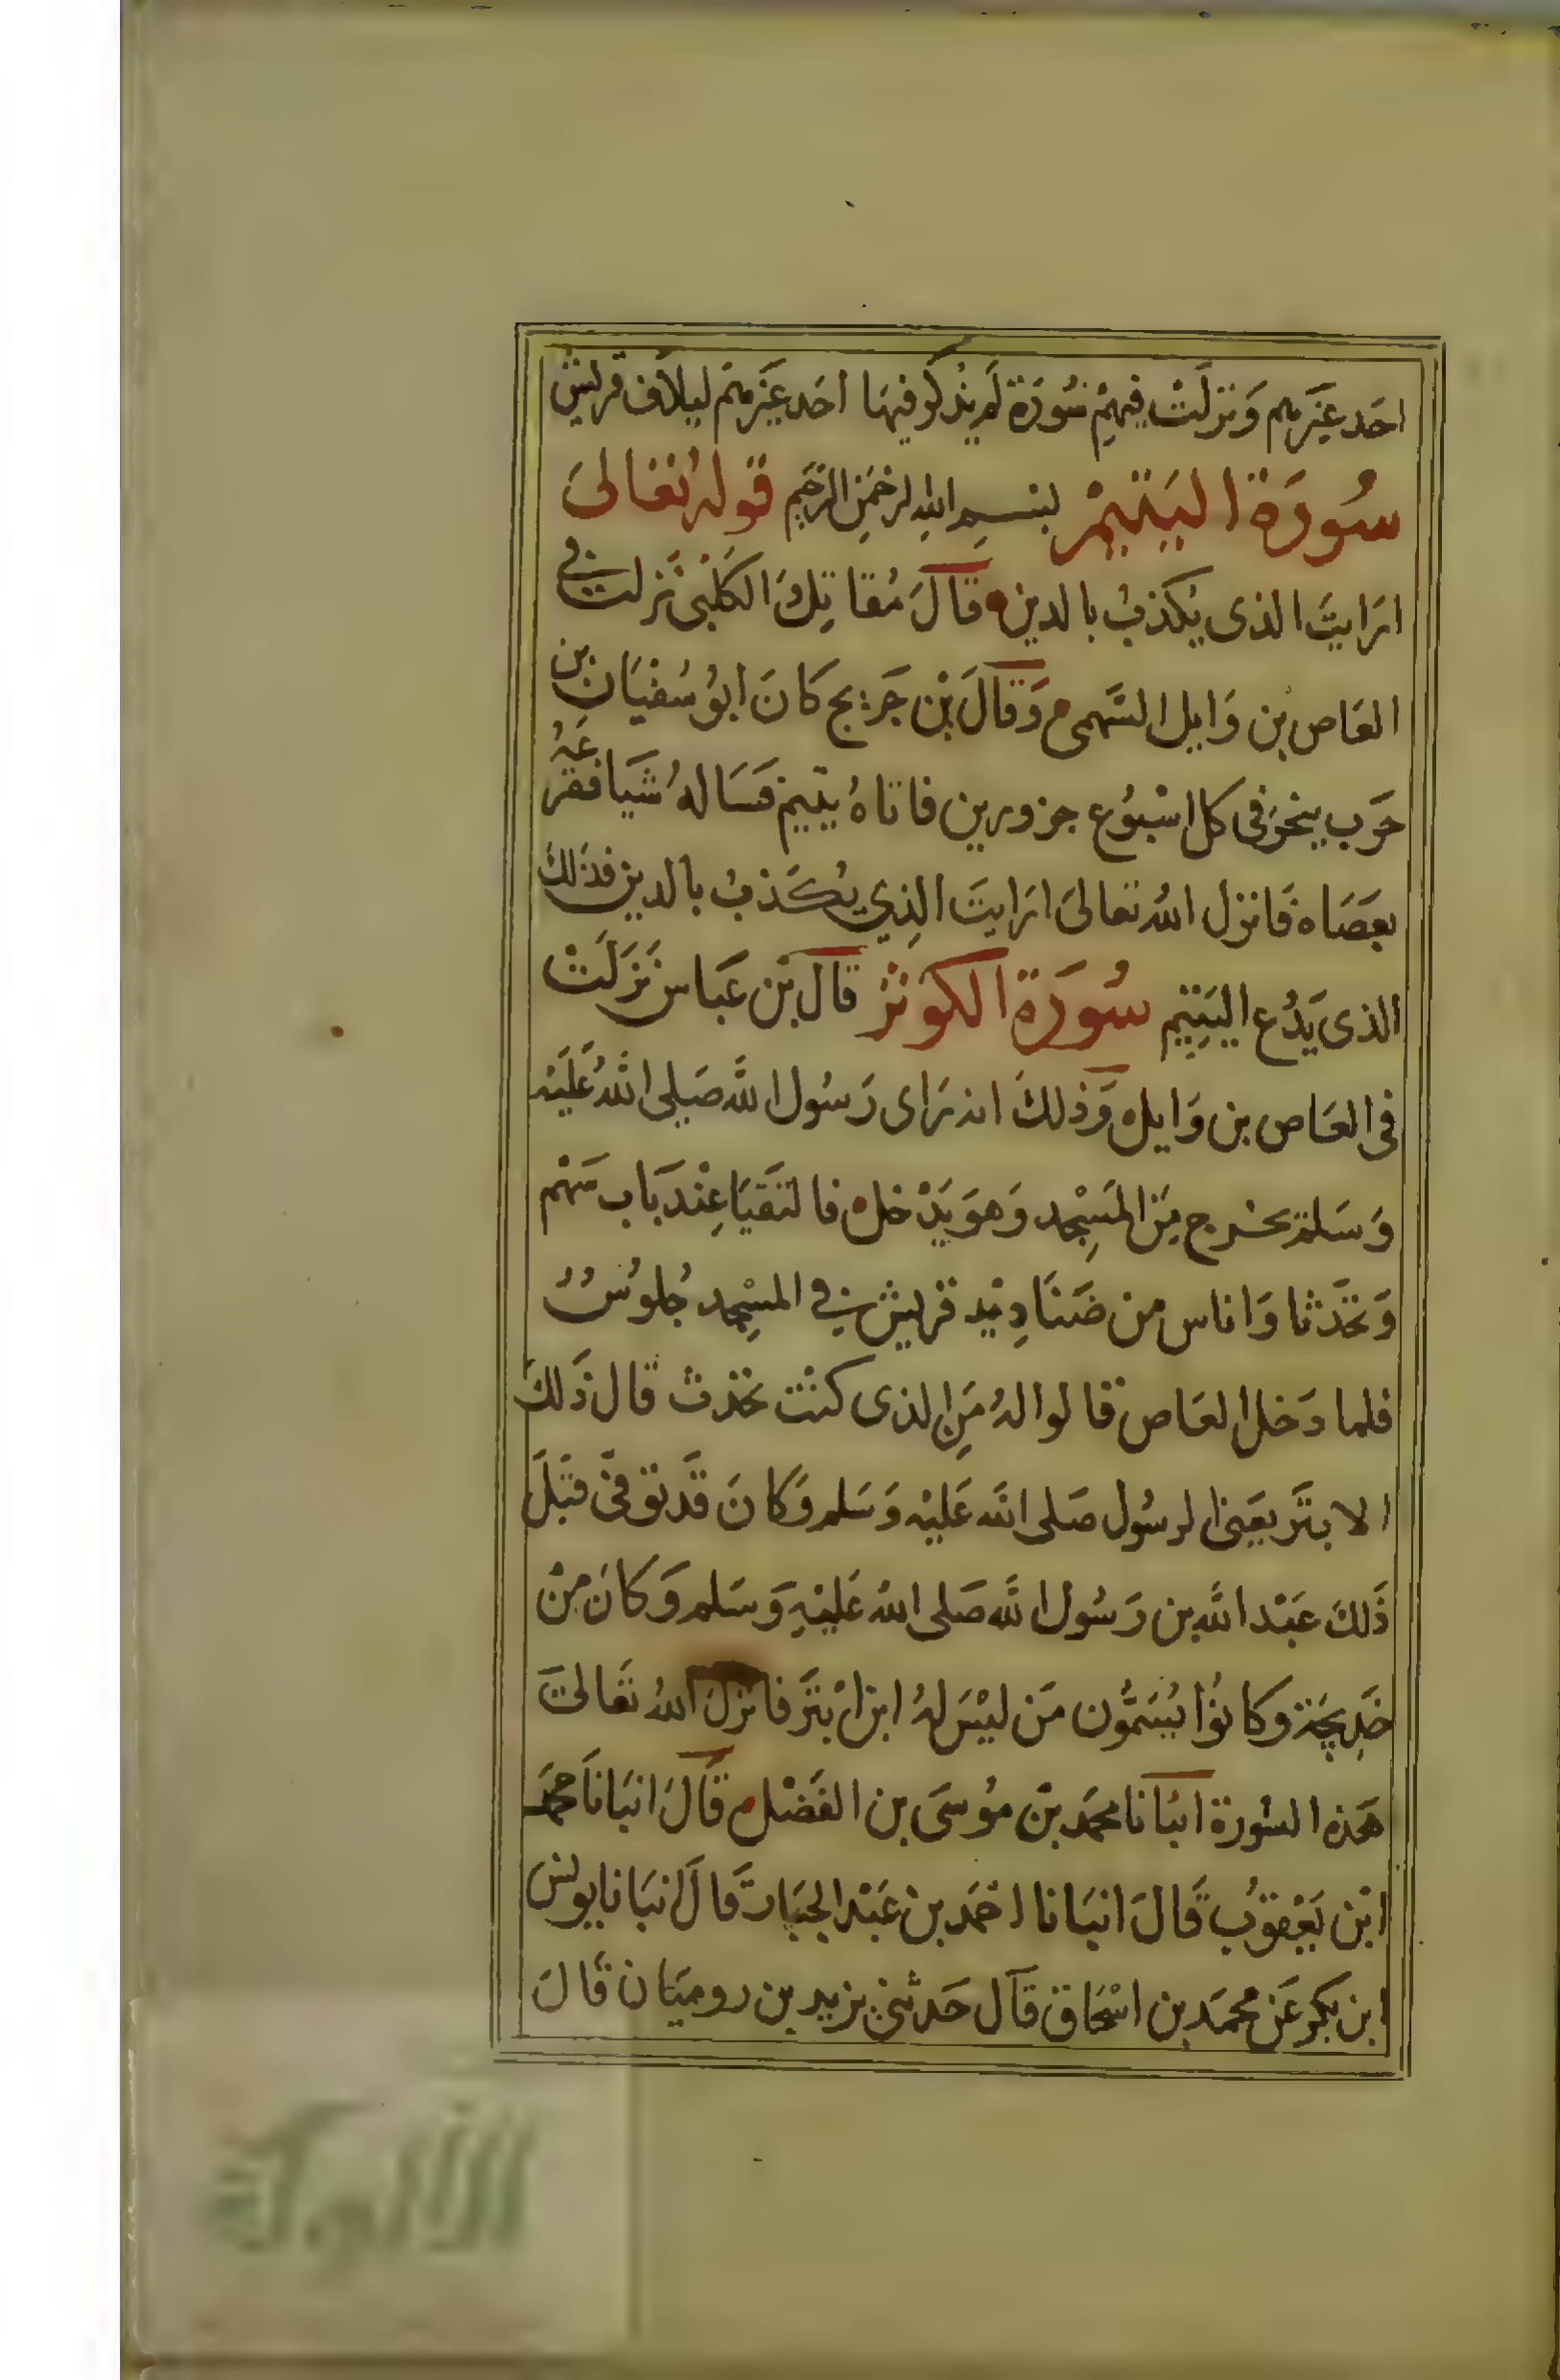 احَد غيَرهم وَنزلَتْ فيهِمْ سُورَة لَم يذكر فيهَا احَد غيَرهم ليلاَف قريش
سُورَة اليَتيمْ بسم الله الرحمَن الرحيَم قوله تعَالىَ
ارَايتَ الذى يكذبُ بالدين قالَ مُقاتِل وَالكلبى نَزلت في
العَاص بن وَايل السَّهمى وَقالَ بْن جَريج كانَ ابوُ سُفيَان بن
حَرب ينحَر فى كل اسْبُوع جزورين فاتاهُ يتيم فسَالهُ شيَا فقرعَهُ
بعَصَاه فانزل اللهُ تعالىَ ارَايتَ الذِي يُكَذبُ بالدين فذلكَ
الذى يَدُع اليَتِيم سُورَة الكوثر قالَ بْن عَباس نَزَلَتْ
فى العَاص بن وَايل وَذلكَ انه رَاى رَسُول الله صَلى اللهُ عَليَه
وَسَلم يخرج مِنَ المَسِجْد وَهوَ يَدْخل فالتَقيَا عِنْد بَاب سَهْم
وَتحَدثا وَاناس من صَنَادِيْد قريش في المسِجْد جُلوُسٌ
فلما دَخل العَاص قالوا لهُ مَنِ الذى كنْت تحَدث قال ذَلكَ
الابتَر يعَنى الرسُول صَلى الله عَليْه وَسَلم وَكانَ قدَ توَفىّ قبَلَ
ذَلكَ عَبْد الله بن رَسُول الله صَلى اللهُ عَليْهِ وَسَلم وَكانَ مِنْ
خَدِيجَة وَكانوُا يُسَمُّون مَن ليْسَ لهُ ابن ابْتَر فانزلَ اللهُ تعَالىَ
هَذه السُورة انبَانا محمَد بْن مُوسَى بن الفَضْل قالَ انبَانا محمَد
ابْن يَعْقوُب قَالَ انبَانا احْمَد بن عَبْد الجبَار قَالَ انبَانا يونس
ابن بكير عَن محمَد بن اسْحَاق قالَ حَدثنى يزيد بن رومَان قَالَ
الألوكة